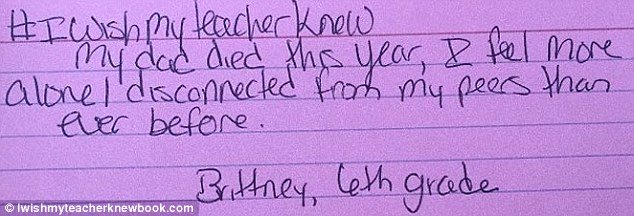 #IWishmyteacherknew
my dad died this year, I feel more
alone/disconnected from my peers than
ever before.
Brittney, 6th grade
© Iwishmyteacherknewbook.com